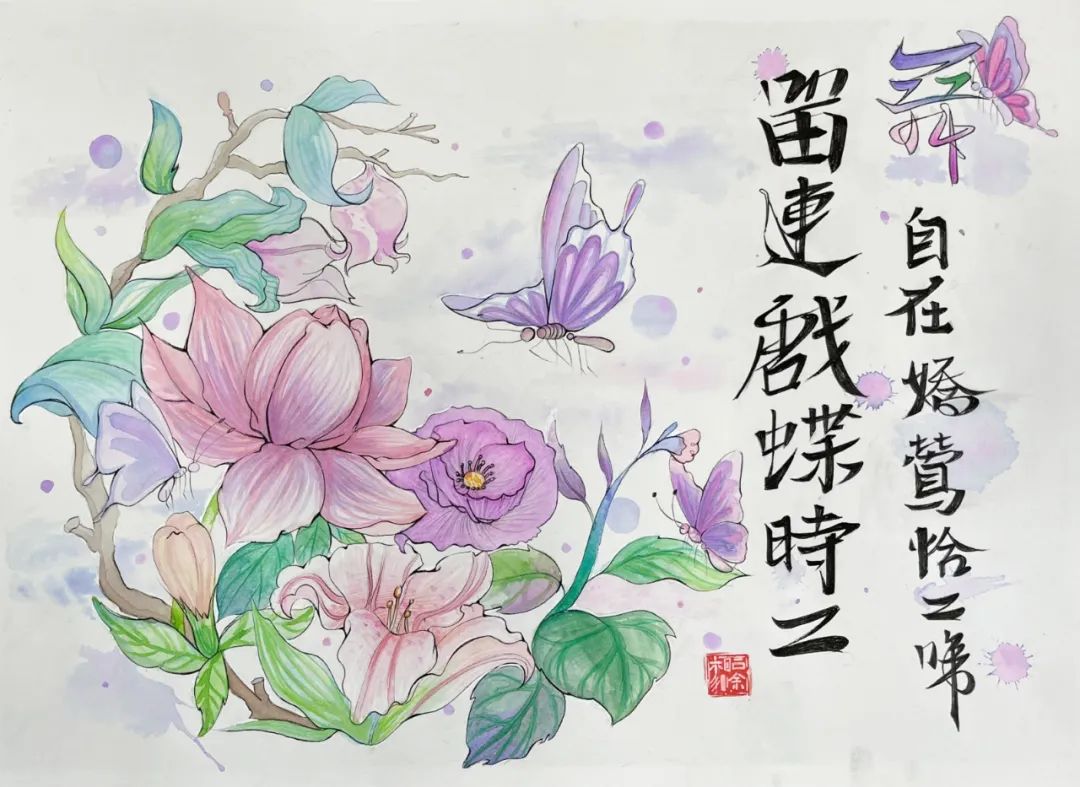 留連戲蝶時二
舞自在嬌鶯恰二啼